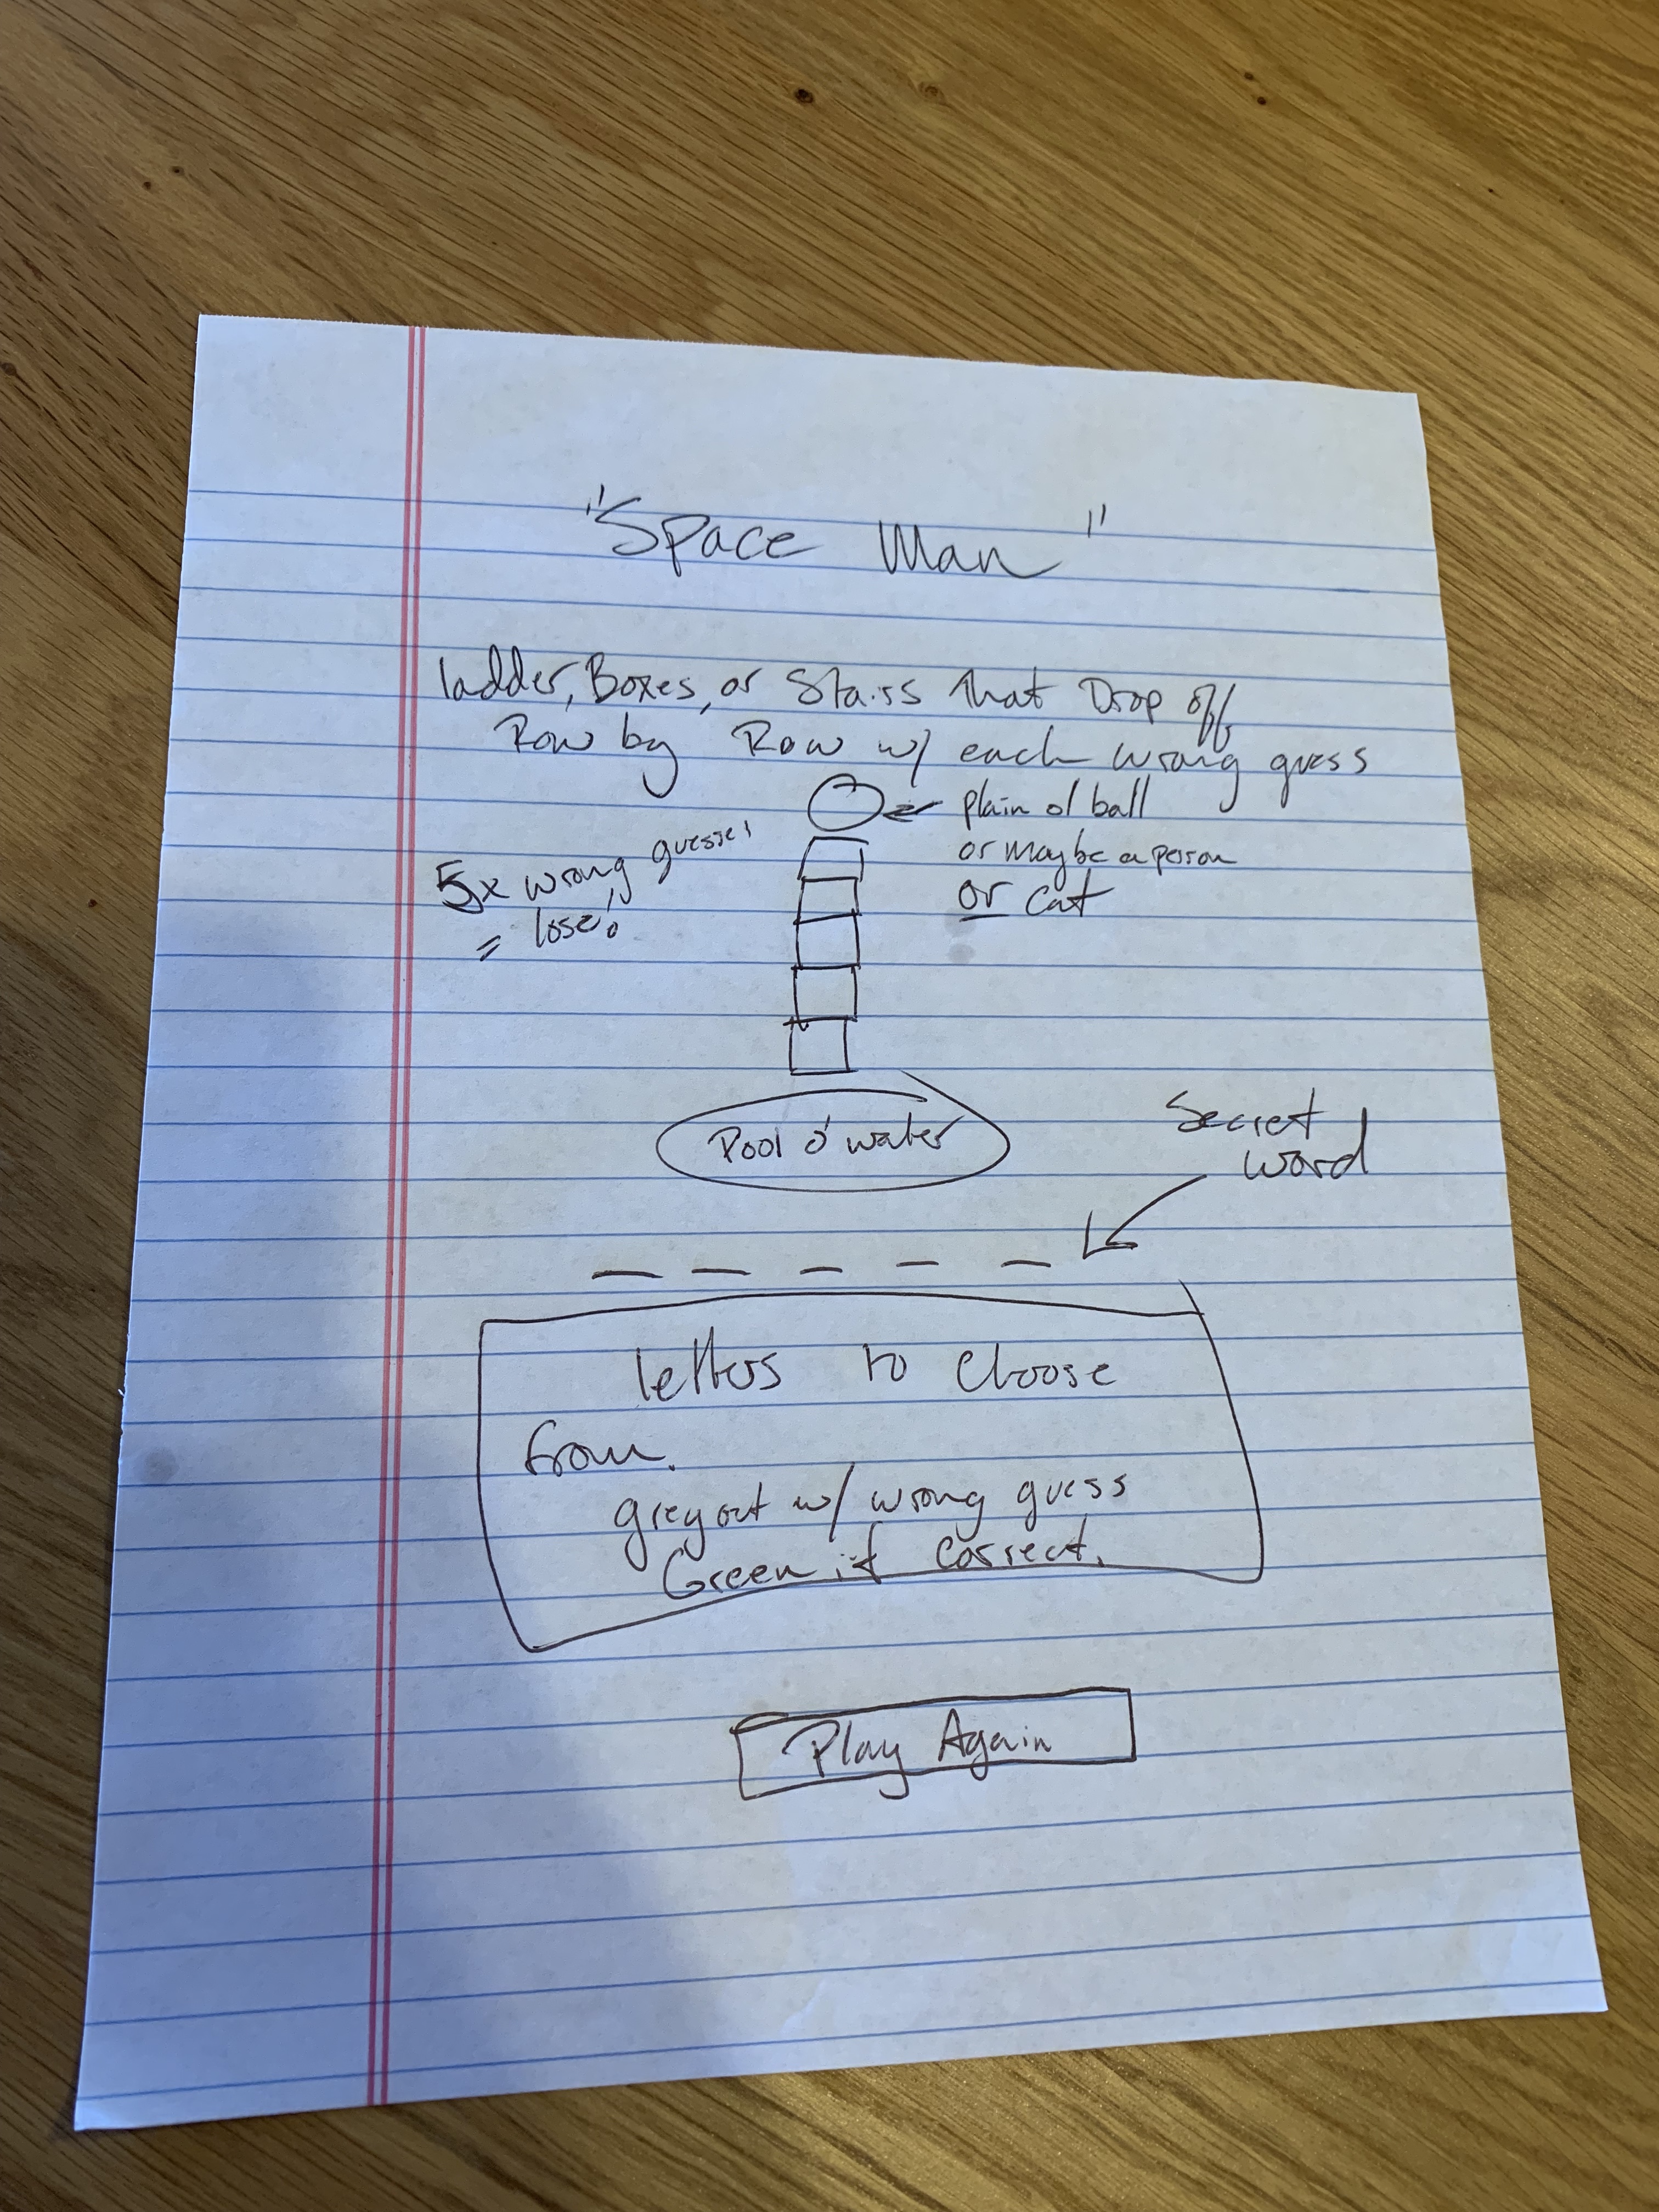 "Space Man"
ladder, Boxes, or Stairs that Drop off
Row by Row w/ each wrong guess
plain ol ball
or maybe a person
or cat
5x wrong guesses
= lose!
Pool o' water
Secret
word
letters to choose
from.
grey out w/ wrong guess
Green if correct.
Play Again